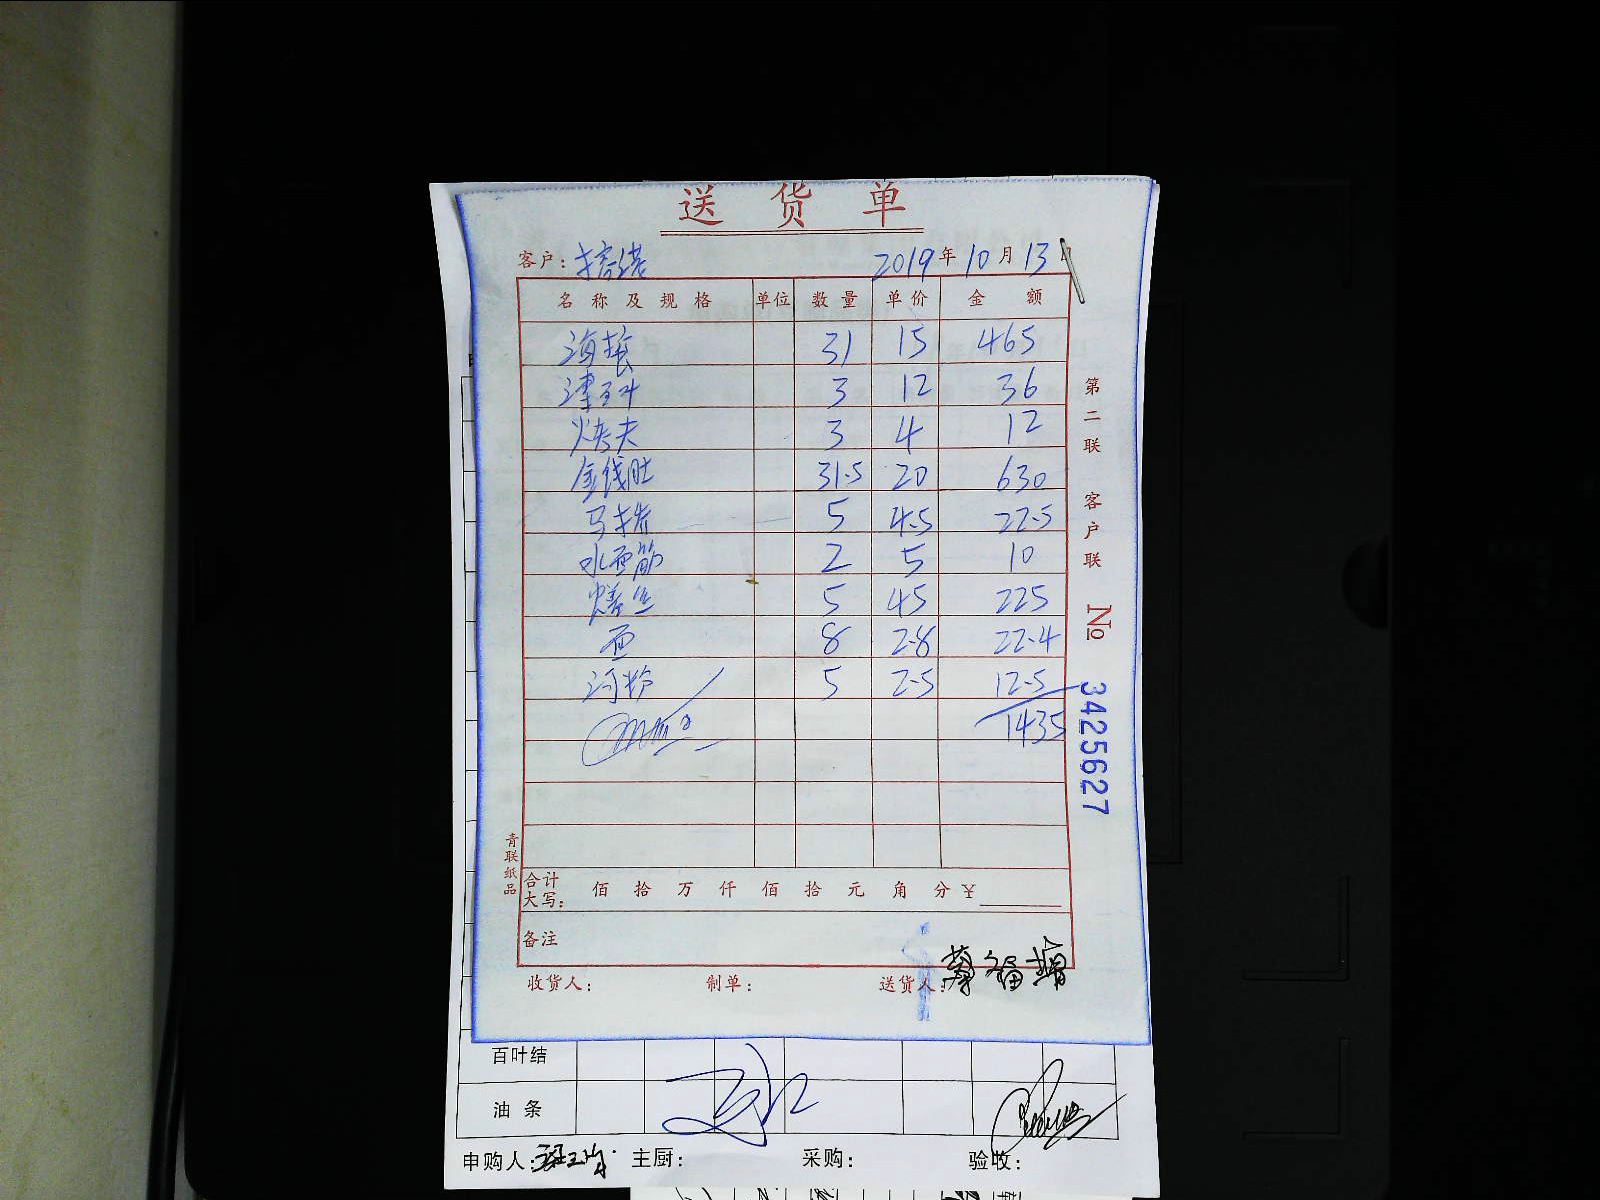 送货单
客户: 2019年10月13日
名称及规格 单位 数量 单价 金额
31 15 465
3 12 36
烤夫 3 4 12
金钱肚 31.5 20 630
5 4.5 22.5
水面筋 2 5 10
鳝丝 5 45 225
面 8 2.8 22.4
河粉 5 2.5 12.5
1435
合计大写: 佰 拾 万 仟 佰 拾 元 角 分 ¥
备注
收货人: 制单: 送货人:
第二联 客户联
№ 3425627
青联纸品
百叶结
油条
申购人: 主厨: 采购: 验收: